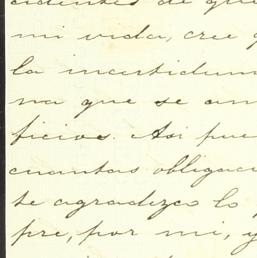 cidentes de que
mi vida, cree q
la incertidum
na que se an
ficios. Asi pue
cuantas obligac
te agradezco lo
pre, por mi, y